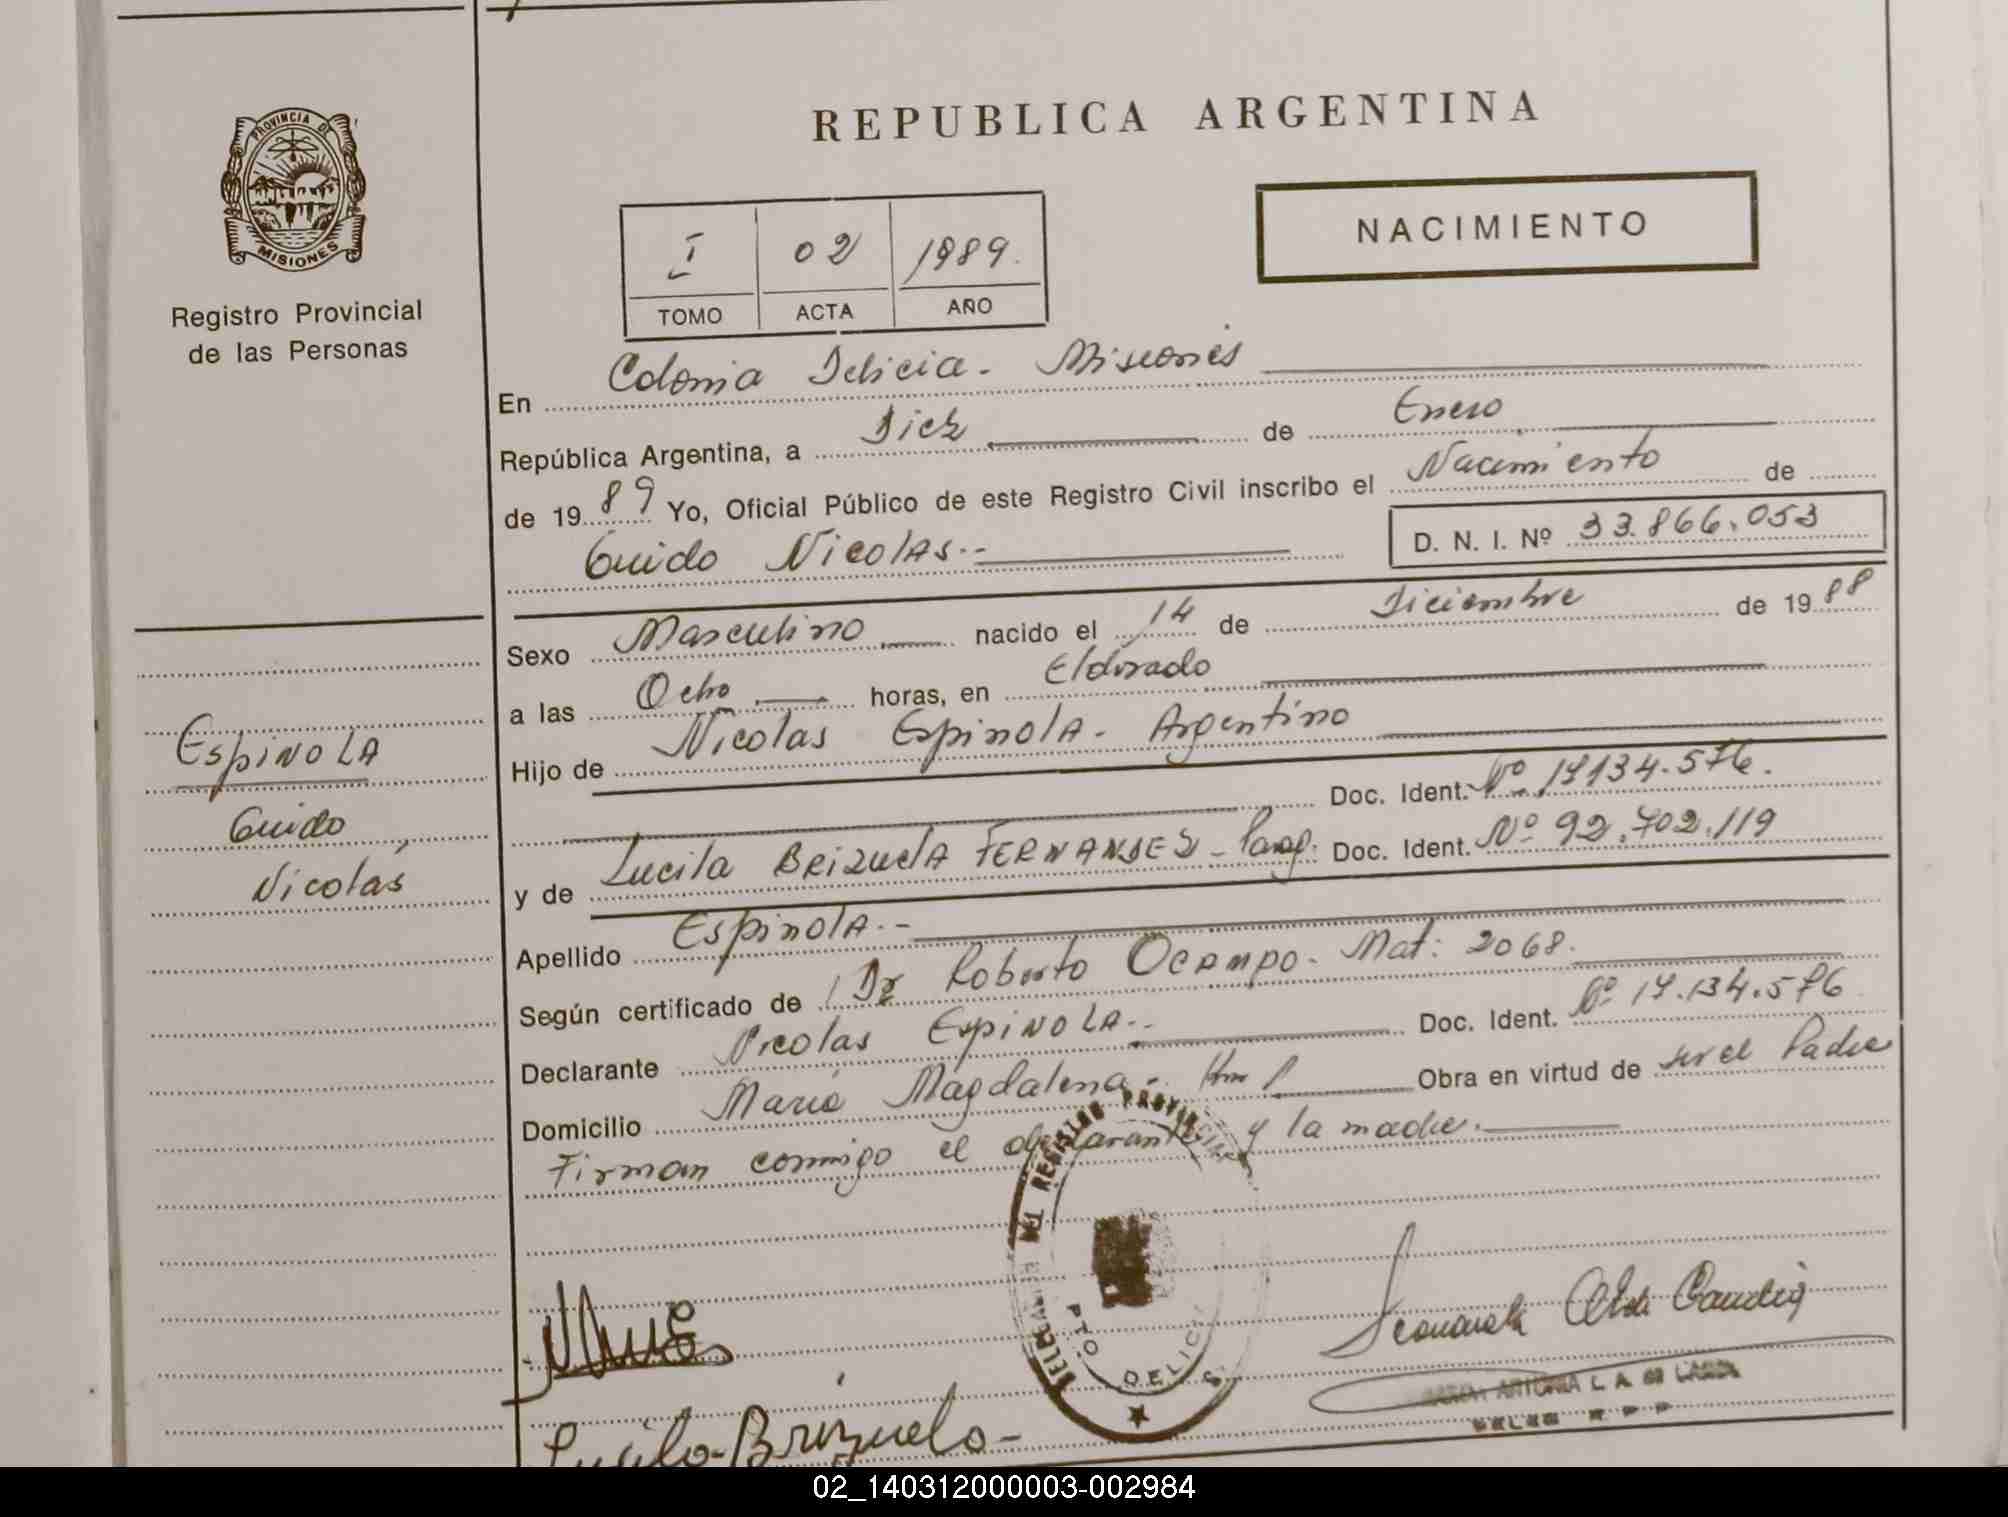 REPUBLICA ARGENTINA
PROVINCIA DE
MISIONES
Registro Provincial
de las Personas
NACIMIENTO
I 02 1989.
TOMO ACTA AÑO
En Colonia Delicia - Misiones
República Argentina, a Diez de Enero
de 1989 Yo, Oficial Público de este Registro Civil inscribo el Nacimiento de
Guido Nicolas.- D. N. I. Nº 33.866.053
Sexo Masculino nacido el 14 de Diciembre de 1988
a las Ocho horas, en Eldorado
Hijo de Nicolas Espinola - Argentino
Doc. Ident. Nº 17134.576.
y de Lucila Brizuela FERNANDEZ - Parag. Doc. Ident. Nº 92.702.119
Apellido Espinola.-
Según certificado de Dr Roberto Ocampo - Mat: 2068.
Declarante Nicolas Espinola.- Doc. Ident. Nº 17.134.576
Domicilio Maria Magdalena - Km 1 Obra en virtud de ser el Padre
Firman conmigo el declarante y la madre.
Espinola
Guido
Nicolás
REGISTRO PROVINCIAL
PTO DELICIA
Lucila Brizuela
ANTONIA L. A. DE
02_140312000003-002984